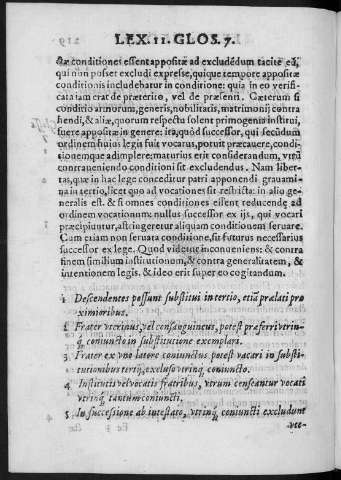 LEX. 11. GLOS. 7.
ctæ conditiones essent appositæ ad excludẽdum tacitè eũ,
qui non posset excludi expresse, quique tempore appositæ
conditionis includebatur in conditione: quia in eo verifi
cata iam erat de præterito, vel de præsenti. Cæterum si
conditio armorum, generis, nobilitatis, matrimonij contra
hendi, & aliæ, quorum respectu solent primogenia institui,
fuere appositæ in genere: ita, quòd successor, qui secũdum
ordinem huius legis fuit vocatus, potuit præcauere, condi-
tionemque adimplere: maturius erit considerandum, vtrũ
contraueniendo conditioni sit excludendus. Nam liber-
tas, quæ in hac lege conceditur patri apponendi grauami-
na in tertio, licet quo ad vocationes sit restricta: in alijs ge
neralis est. & si omnes conditiones essent reducendę ad
ordinem vocationum: nullus successor ex ijs, qui vocari
præcipiuntur, astringeretur aliquam conditionem seruare.
Cum etiam non seruata conditione, sit futurus necessarius
successor ex lege. Quod videtur inconueniens: & contra
finem similium institutionum, & contra generalitatem, &
intentionem legis. & ideo erit super eo cogitandum.
1 Descendentes possunt substitui in tertio, etiã prælati pro
ximioribus.
2 Frater vterinus, vel consanguineus, potest præferri vtrin-
q̃, coniuncto in substitutione exemplari.
3 Frater ex vno latere coniunctus potest vocari in substi-
tutionibus tertij, excluso vtrinq̃ coniuncto.
4 Institutis vel vocatis fratribus, vtrum censeantur vocati
vtrinq̃ tantum coniuncti,
5 In successione ab intestato, vtrinq̃ coniuncti excludunt
vte-